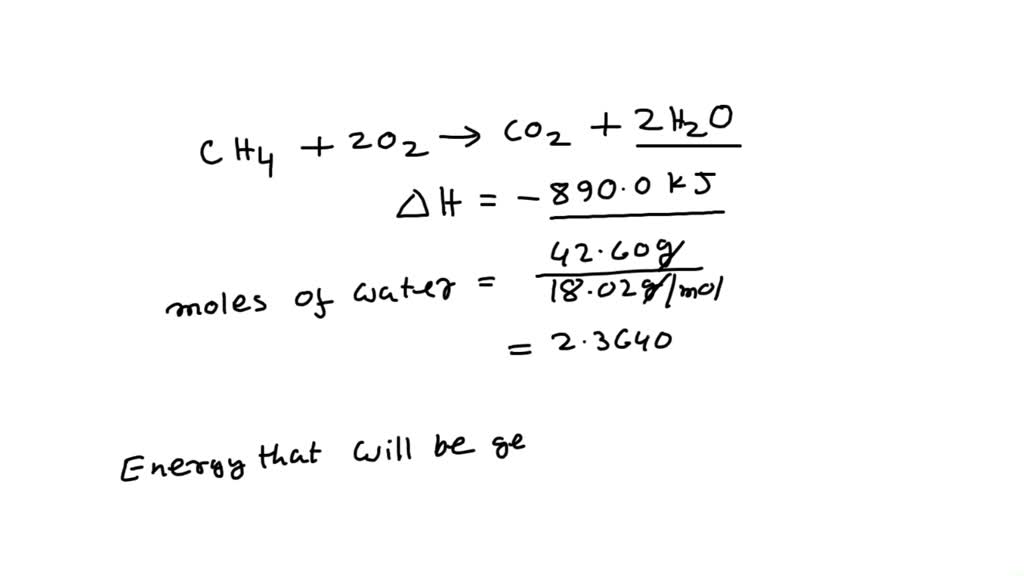 CH₄ + 2O₂ → CO₂ + 2H₂O
ΔH = - 890.0 kJ
moles of water = 42.60g / 18.02g/mol
= 2.3640
Energy that will be ge